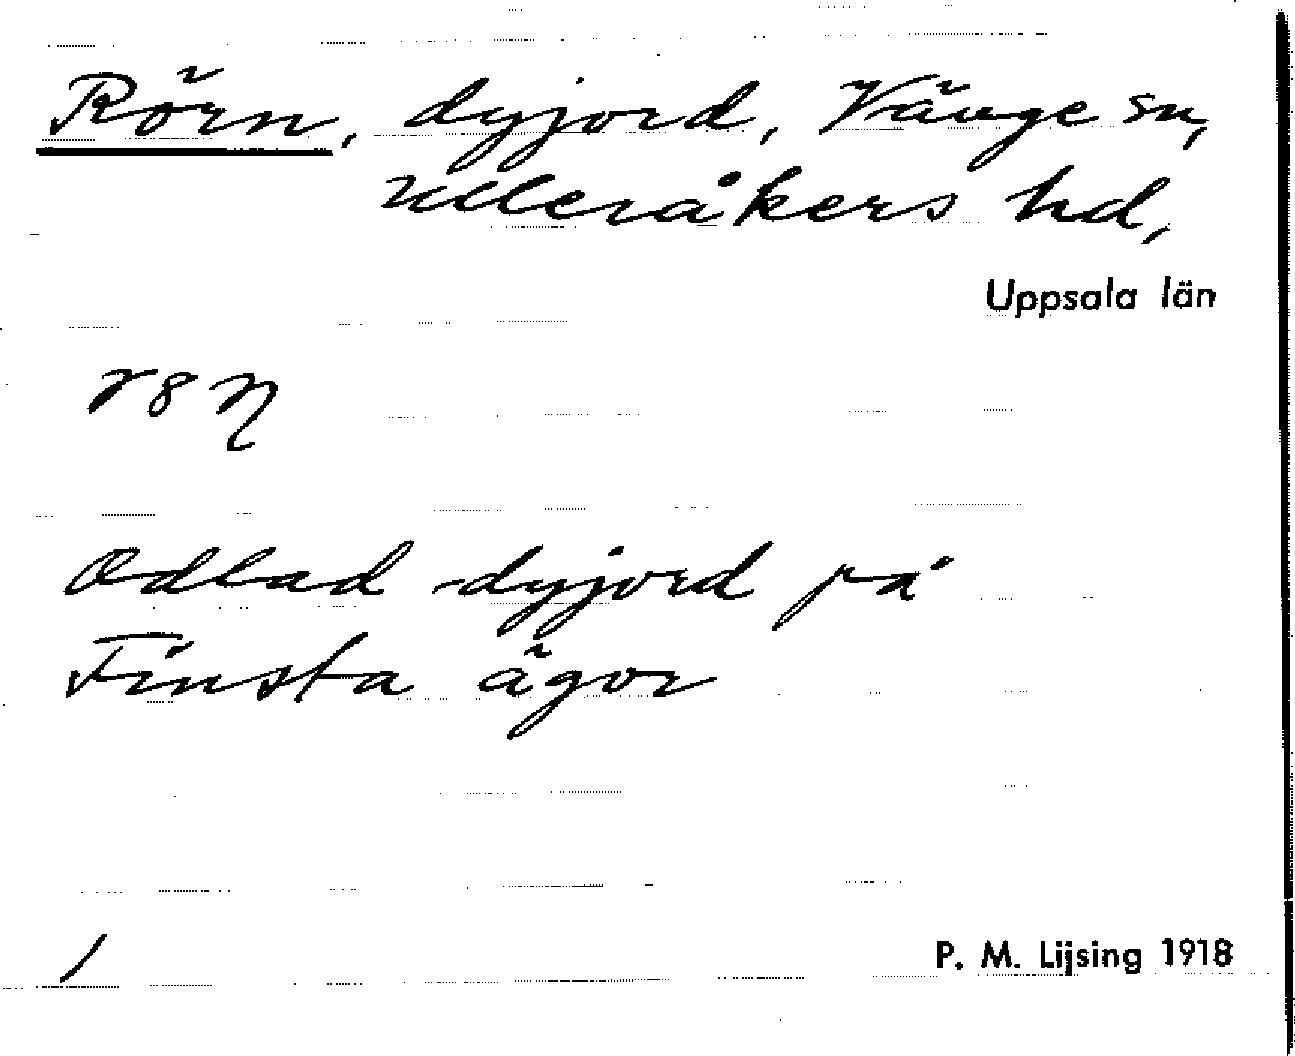 Rörn, dyjord, Vänge sn,
Ulleråkers hd,
Uppsala län
Odlad dyjord på
Finsta ägor
/
P. M. Lijsing 1918